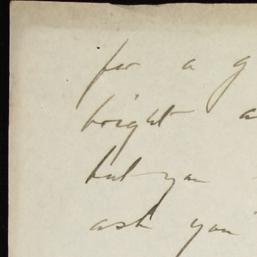 for a g
bright a
but you
ask you